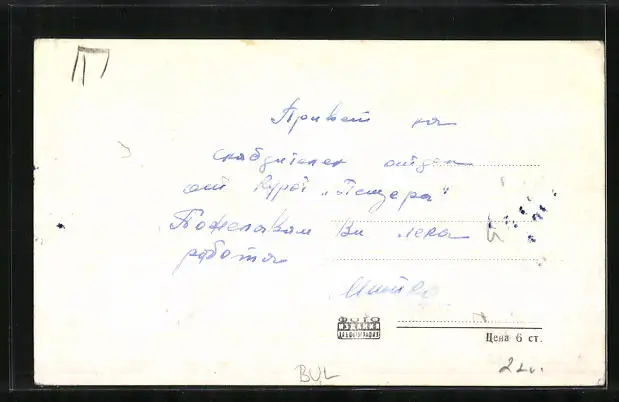 П
Привет на
снабдителен отдел
от Курорт „Пещера"
Пожелавам Ви лека
работа
Митко
ФОТО
ИЗДАНИЕ
Цена 6 ст.
BUL